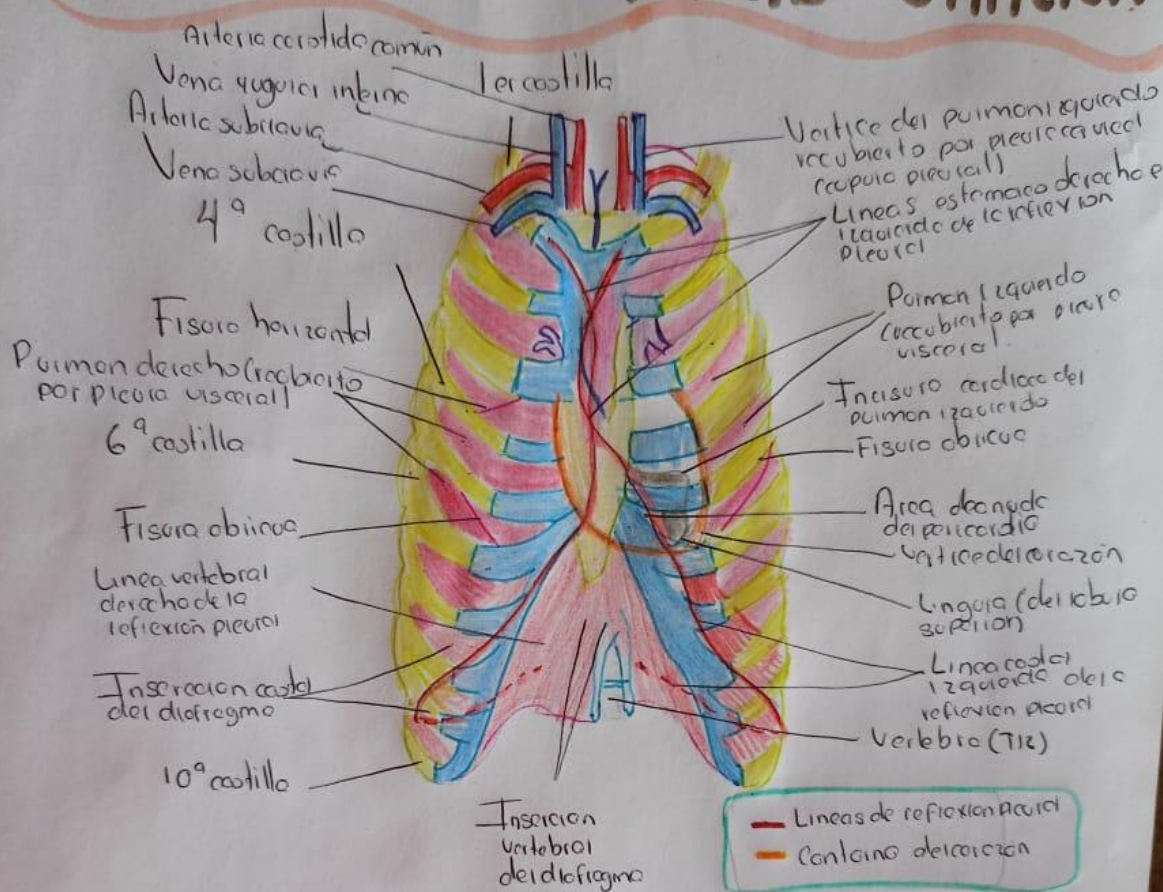 Arteria carotida común
Vena yugular interna
Arteria subclavia
Vena subclavia
4ª costilla
Fisura horizontal
Pulmon derecho (recbierto
por pleura visceral)
6ª costilla
Fisura oblicua
Linea vertebral
derecha de la
reflexión pleural
Insercción costal
del diafragma
10ª costilla
1er costilla
Vertice del pulmon izquierdo
recubierto por pleura cervical
(cupula pleural)
Lineas
derecha e
izquierda de la
pleural
Pulmon izquierdo
por pleura
visceral.
Incisura cardiaca del
pulmon izquierdo
Fisura oblicua
Area desnuda
del pericardio
Vertice del corazón
Lingula (del lobulo
superior)
Linea costal
izquierda de la
reflexion pleural
Vertebra (T12)
Inserción
vertebral
del diafragma
Lineas de reflexion pleural
Contorno del corazón